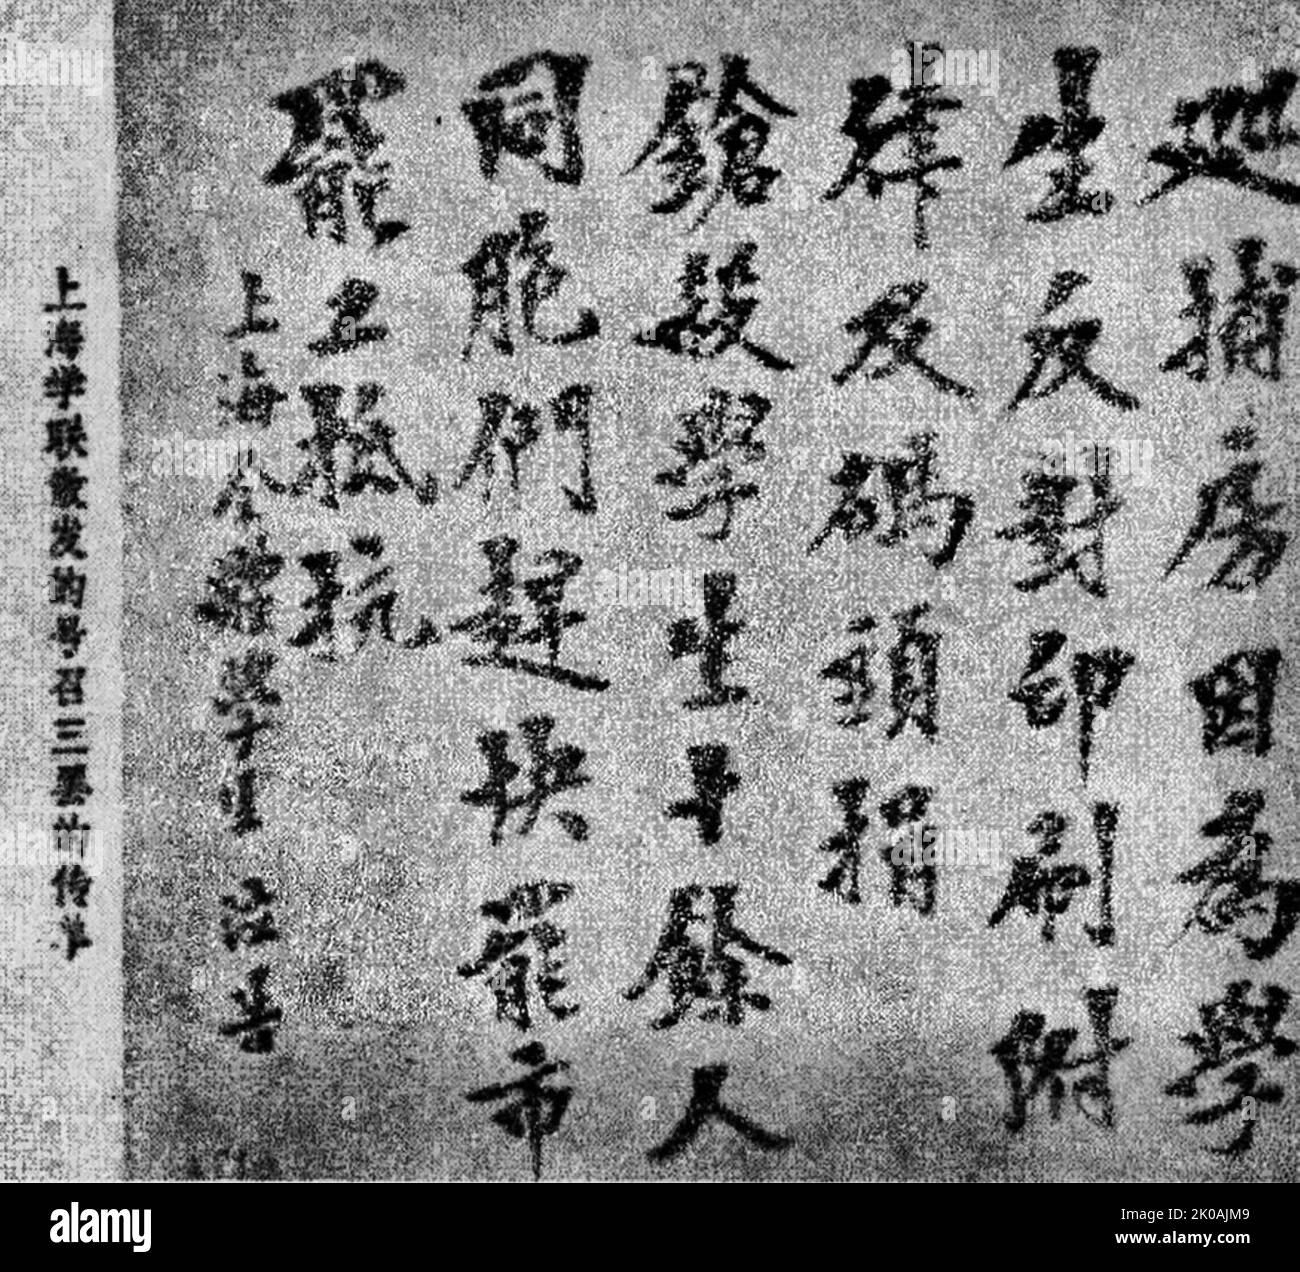 巡捕房因為學
生反對印刷附
律及碼頭捐
鎗殺學生十餘人
同胞們趕快罷市
罷工抵抗
上海全體學生泣告
上海学联散发的号召三罢的传单
alamy
Image ID: 2K0AJM9
www.alamy.com